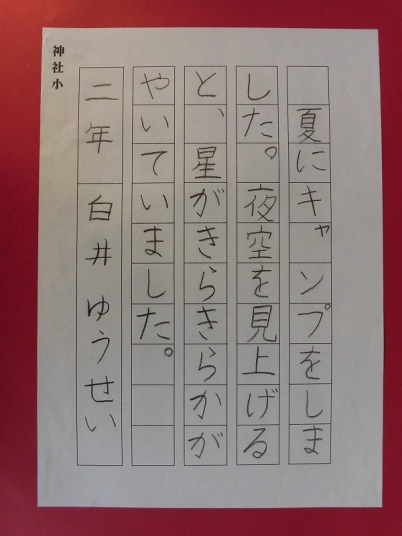 夏にキャンプをしま
した。夜空を見上げる
と、星がきらきらかが
やいていました。
二年 白井ゆうせい
神社小